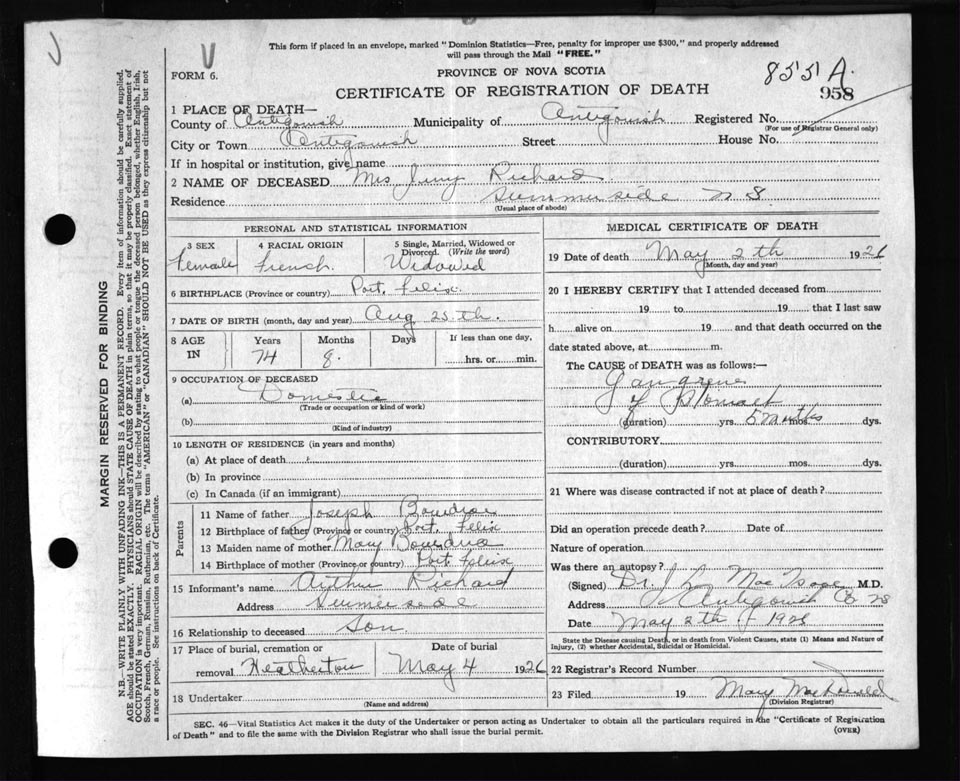 This form if placed in an envelope, marked "Dominion Statistics—Free, penalty for improper use $300," and properly addressed
will pass through the Mail "FREE."
FORM 6.
PROVINCE OF NOVA SCOTIA
855 A.
CERTIFICATE OF REGISTRATION OF DEATH
958
1 PLACE OF DEATH—
County of Antigonish Municipality of Antigonish Registered No.
(For use of Registrar General only)
City or Town Antigonish Street House No.
If in hospital or institution, give name
2 NAME OF DECEASED Mrs Richard
Residence Summerside N S.
(Usual place of abode)
PERSONAL AND STATISTICAL INFORMATION
3 SEX 4 RACIAL ORIGIN 5 Single, Married, Widowed or Divorced. (Write the word)
Female French. Widowed
6 BIRTHPLACE (Province or country) Port. Felix.
7 DATE OF BIRTH (month, day and year) Aug 25th.
8 AGE IN Years Months Days If less than one day,
74 8. hrs. or min.
9 OCCUPATION OF DECEASED
(a) Domestic
(Trade or occupation or kind of work)
(b)
(Kind of industry)
10 LENGTH OF RESIDENCE (in years and months)
(a) At place of death
(b) In province
(c) In Canada (if an immigrant)
Parents
11 Name of father Joseph
12 Birthplace of father (Province or country) Port. Felix
13 Maiden name of mother Mary
14 Birthplace of mother (Province or country) Port Felix
15 Informant's name Arthur Richard
Address Summerside
16 Relationship to deceased Son
17 Place of burial, cremation or removal Heatherton Date of burial May 4 1926
18 Undertaker
(Name and address)
MEDICAL CERTIFICATE OF DEATH
19 Date of death May 2th 1926
(Month, day and year)
20 I HEREBY CERTIFY that I attended deceased from
19 to 19 that I last saw
h alive on 19 and that death occurred on the
date stated above, at m.
The CAUSE of DEATH was as follows:—
Gangrene
of Stomach
(duration) yrs. 5 Months mos. dys.
CONTRIBUTORY
(duration) yrs. mos. dys.
21 Where was disease contracted if not at place of death?
Did an operation precede death? Date of
Nature of operation
Was there an autopsy?
(Signed) Dr. J. L. MacIsaac M.D.
Address Antigonish Co NS
Date May 2th 1926
State the Disease causing Death, or in death from Violent Causes, state (1) Means and Nature of
Injury, (2) whether Accidental, Suicidal or Homicidal.
22 Registrar's Record Number
23 Filed 19 Mary MacDonald
(Division Registrar)
SEC. 46—Vital Statistics Act makes it the duty of the Undertaker or person acting as Undertaker to obtain all the particulars required in the "Certificate of Registration
of Death" and to file the same with the Division Registrar who shall issue the burial permit. (OVER)
MARGIN RESERVED FOR BINDING
N.B.—WRITE PLAINLY WITH UNFADING INK—THIS IS A PERMANENT RECORD. Every item of information should be carefully supplied.
AGE should be stated EXACTLY. PHYSICIANS should STATE CAUSE OF DEATH in plain terms, so that it may be properly classified. Exact statement of
OCCUPATION is very important. RACIAL ORIGIN will be described by stating to what people or tongue the deceased person belonged, whether English, Irish,
Scotch, French, German, Russian, Ruthenian, etc. The terms "AMERICAN" or "CANADIAN" SHOULD NOT BE USED as they express citizenship but not
a race or people. See instructions on back of Certificate.